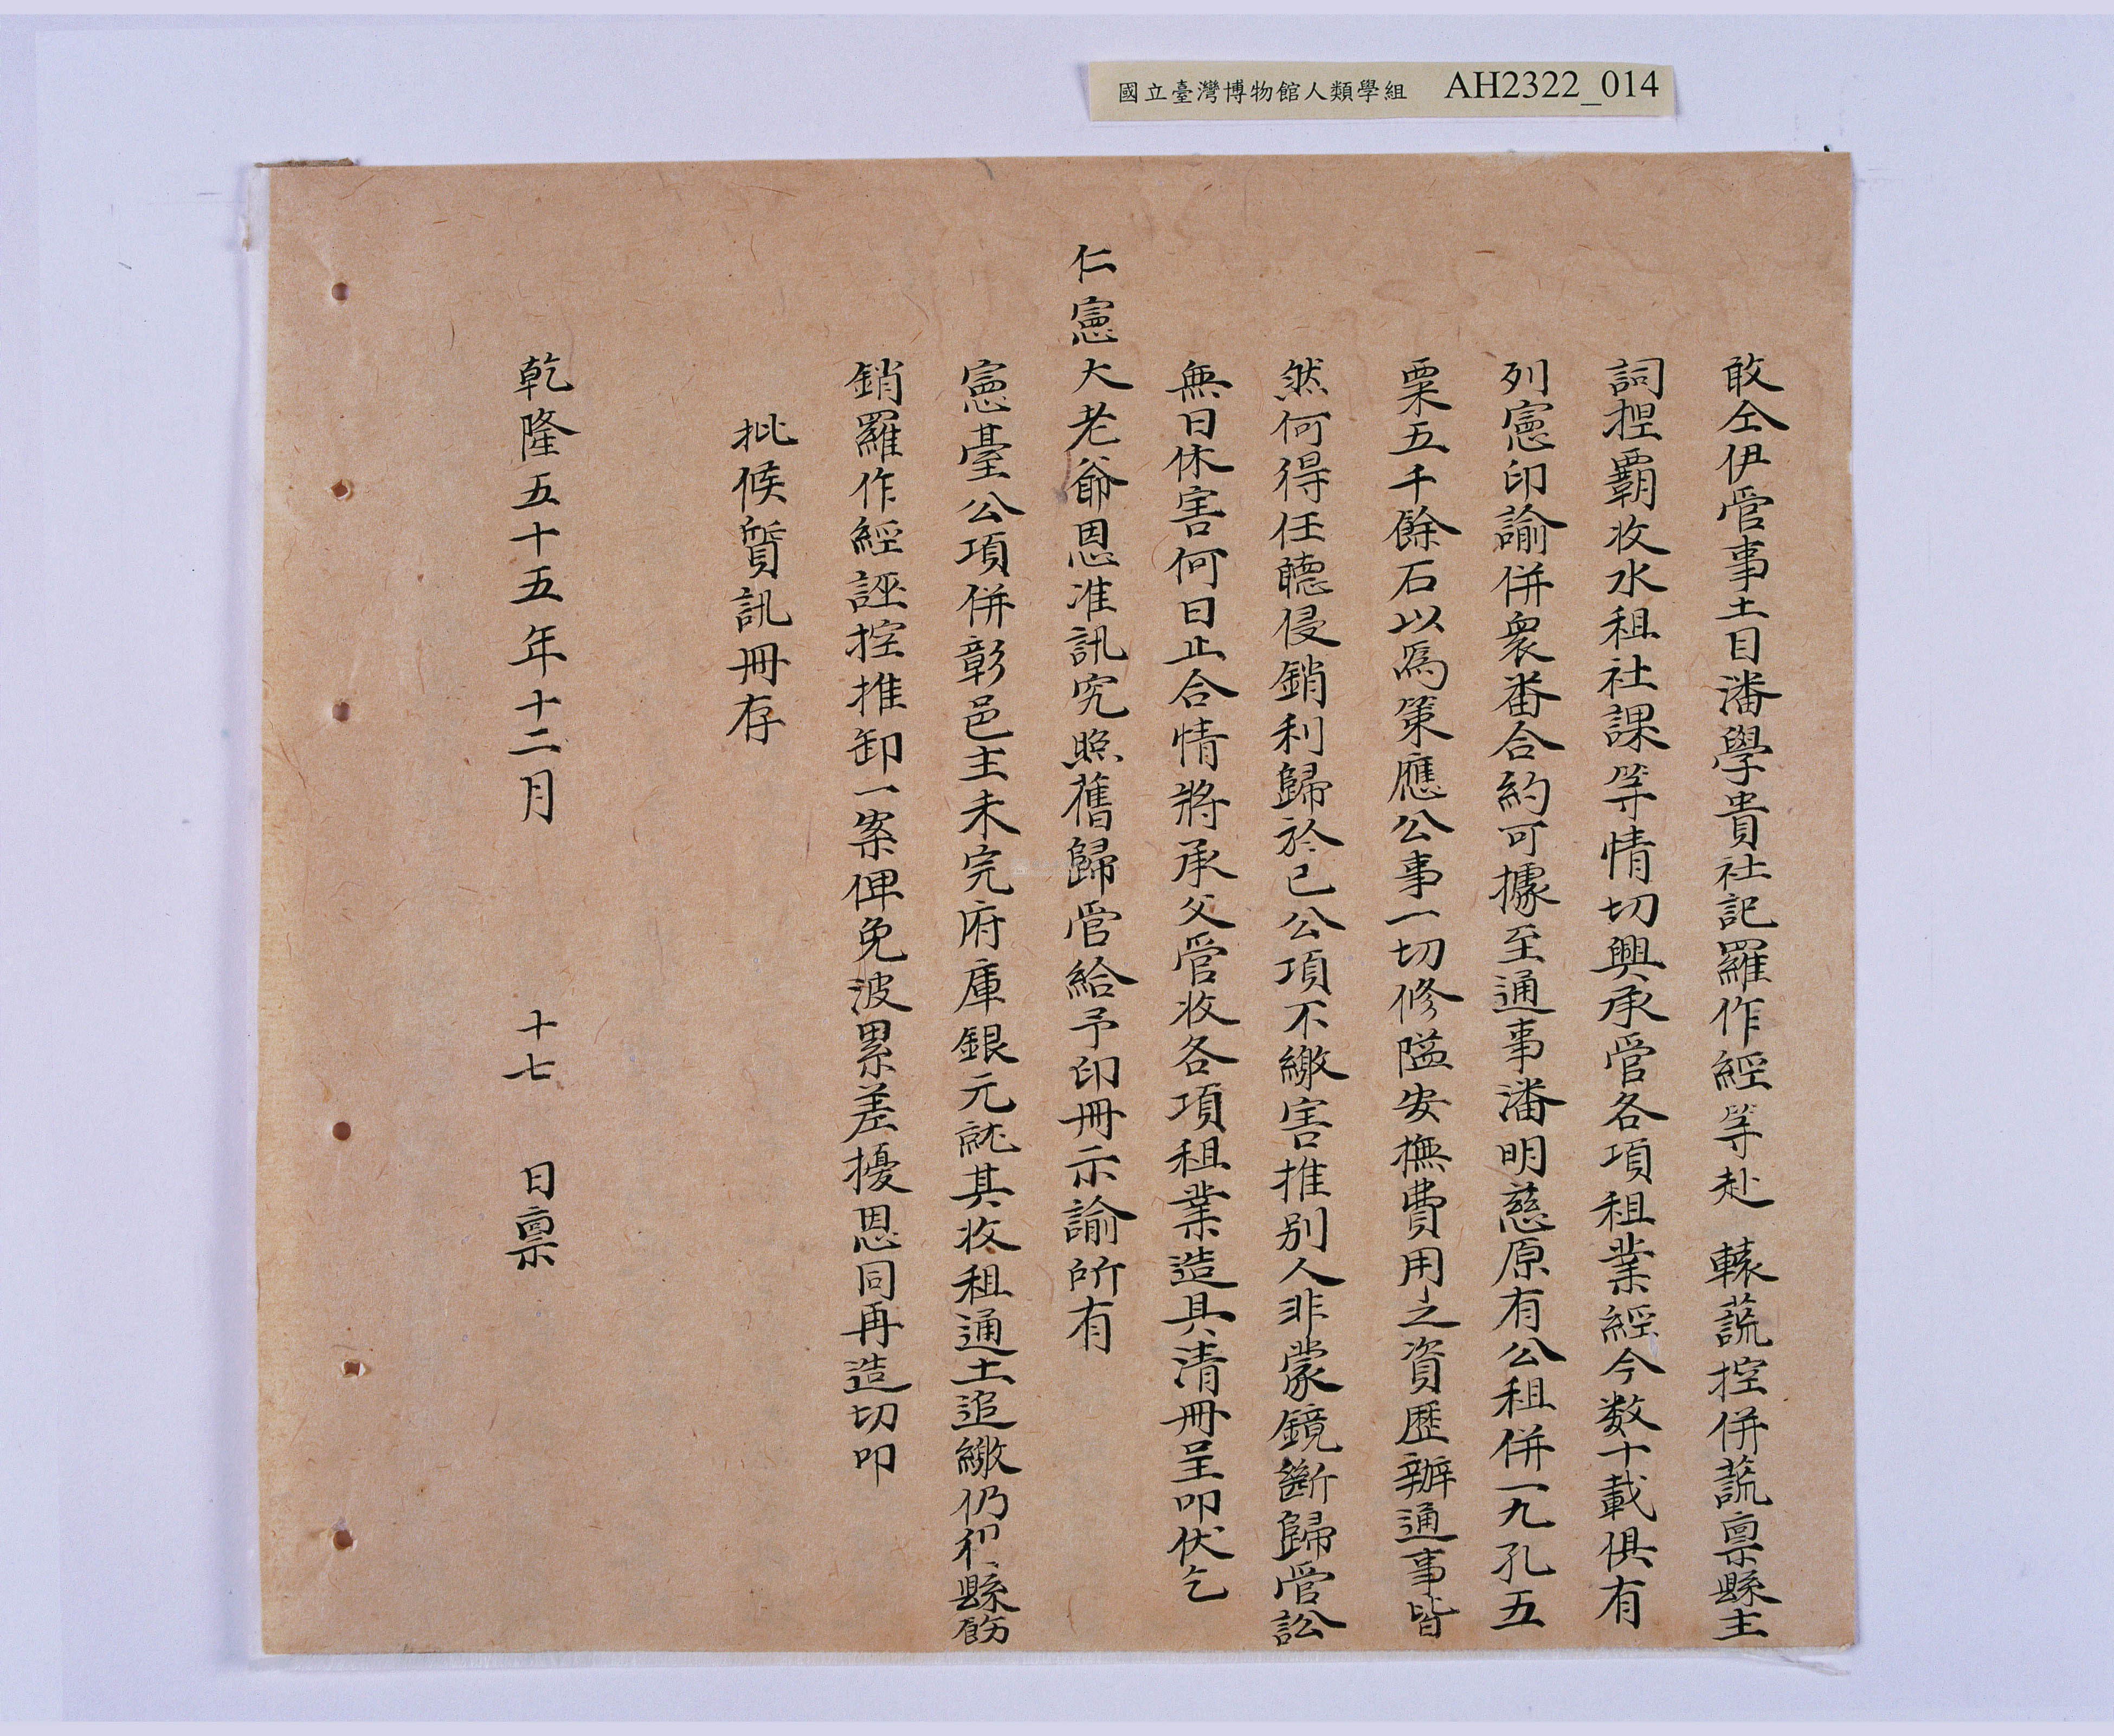 國立臺灣博物館人類學組 AH2322_014
敢仝伊管事土目潘學貴社記羅作經等赴 轅謊控併謊禀縣主
詞捏霸收水租社課等情切興承管各項租業經今数十載俱有
列憲印諭併衆番合約可據至通事潘明慈原有公租併一九孔五
粟五千餘石以爲策應公事一切修隘安撫費用之資歷辦通事皆
然何得任聽侵銷利歸於己公項不繳害推别人非蒙鏡斷歸管訟
無日休害何日止合情將承父管收各項租業造具清冊呈叩伏乞
仁憲大老爺恩准訊究照舊歸管給予印冊示諭所有
憲臺公項併彰邑主未完府庫銀元就其收租通土追繳仍移縣飭
銷羅作經誣控推卸一案俾免波累差擾恩同再造切叩
批候質訊冊存
乾隆五十五年十二月 十七 日禀